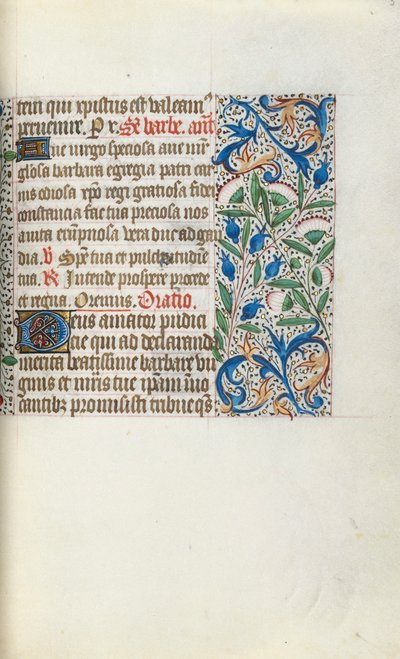 tem qui xpistus est valeam
peruenire. P r. Sce barbe. ant
Aue uirgo speciosa aue mir
glosa barbara egregia patri car
nis exosa xpo regi gratiosa fidei
constancia fac tua preciosa nos
amica erupnosa vera duc ad gau
dia. V Spe tua et pulchritudine
tua. R Intende prospere procede
et regna. Oremus. Oratio.
Deus amator pudic
cie qui ad declarandū
merita beatissime barbare uir
ginis et mris tue
cantibz promisisti tribue qs